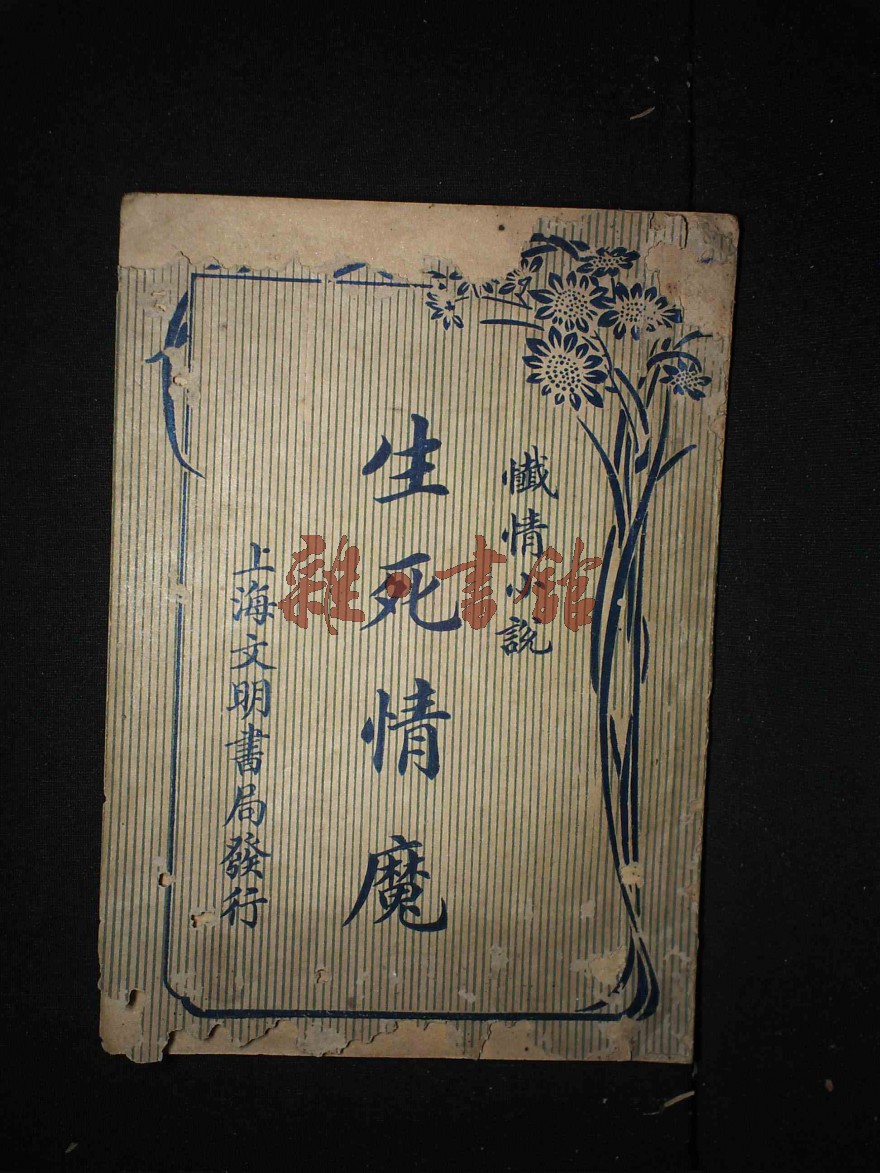 懺情小説
生死情魔
上海文明書局發行
雜·書館